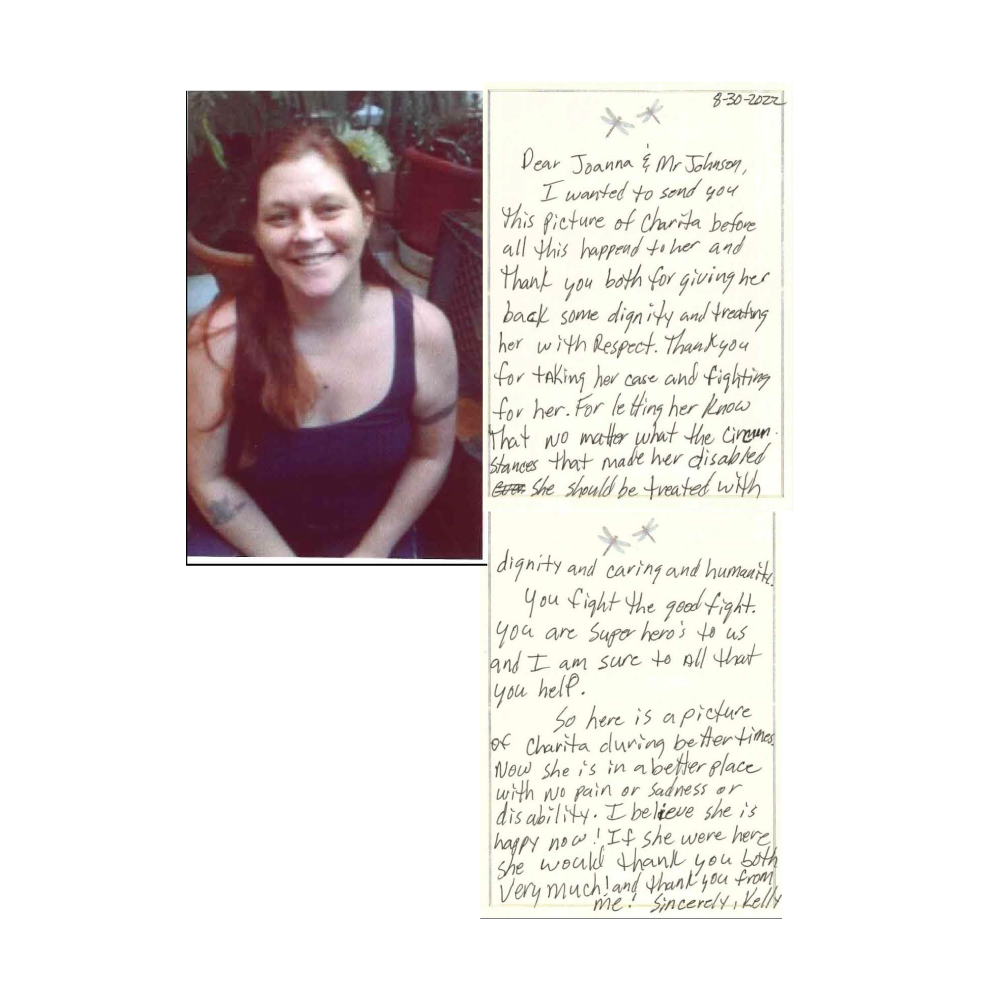 8-30-2022
Dear Joanna & Mr Johnson,
I wanted to send you
this picture of Charita before
all this happend to her and
thank you both for giving her
back some dignity and treating
her with Respect. Thank you
for taking her case and fighting
for her. For letting her know
that no matter what the circum-
stances that made her disabled
she should be treated with
dignity and caring and humanity.
You fight the good fight.
you are Super hero's to us
and I am sure to all that
you help.
So here is a picture
of Charita during better times.
Now she is in a better place
with no pain or sadness or
disability. I believe she is
happy now! If she were here
she would thank you both
very much! and thank you from
me! Sincerely, Kelly